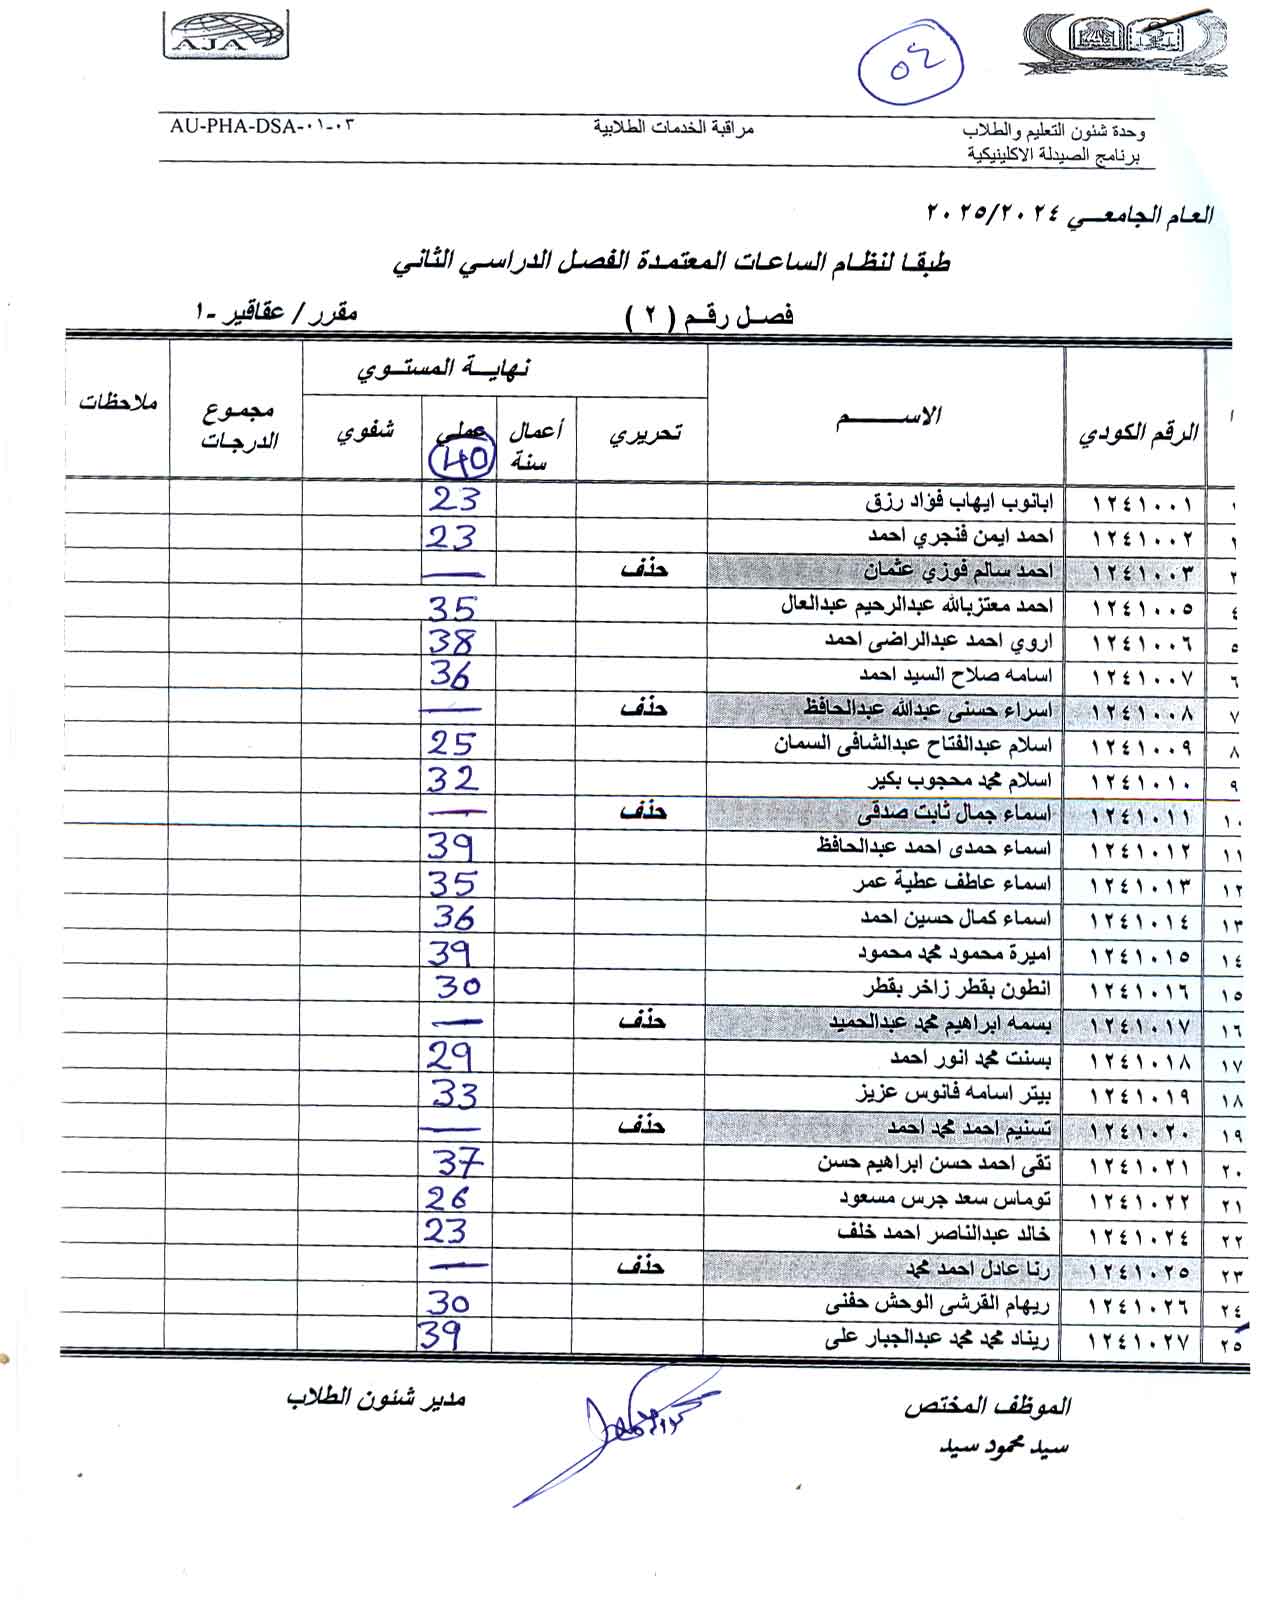 AJA
٥٤
وحدة شئون التعليم والطلاب
برنامج الصيدلة الاكلينيكية
مراقبة الخدمات الطلابية
AU-PHA-DSA-٠١-٠٣
العام الجامعي ٢٠٢٥/٢٠٢٤
طبقا لنظام الساعات المعتمدة الفصل الدراسي الثاني
فصل رقم ( ٢ ) مقرر / عقاقير -١
الرقم الكودي الاسم نهاية المستوي مجموع الدرجات ملاحظات
تحريري أعمال سنة عملي شفوي
40
١ ١٢٤١٠٠١ ابانوب ايهاب فؤاد رزق 23
٢ ١٢٤١٠٠٢ احمد ايمن فنجري احمد 23
٣ ١٢٤١٠٠٣ احمد سالم فوزي عثمان حذف —
٤ ١٢٤١٠٠٥ احمد معتزبالله عبدالرحيم عبدالعال 35
٥ ١٢٤١٠٠٦ اروي احمد عبدالراضى احمد 38
٦ ١٢٤١٠٠٧ اسامه صلاح السيد احمد 36
٧ ١٢٤١٠٠٨ اسراء حسنى عبدالله عبدالحافظ حذف —
٨ ١٢٤١٠٠٩ اسلام عبدالفتاح عبدالشافى السمان 25
٩ ١٢٤١٠١٠ اسلام محمد محجوب بكير 32
١٠ ١٢٤١٠١١ اسماء جمال ثابت صدقى حذف —
١١ ١٢٤١٠١٢ اسماء حمدى احمد عبدالحافظ 39
١٢ ١٢٤١٠١٣ اسماء عاطف عطية عمر 35
١٣ ١٢٤١٠١٤ اسماء كمال حسين احمد 36
١٤ ١٢٤١٠١٥ اميرة محمود محمد محمود 39
١٥ ١٢٤١٠١٦ انطون بقطر زاخر بقطر 30
١٦ ١٢٤١٠١٧ بسمه ابراهيم محمد عبدالحميد حذف —
١٧ ١٢٤١٠١٨ بسنت محمد انور احمد 29
١٨ ١٢٤١٠١٩ بيتر اسامه فانوس عزيز 33
١٩ ١٢٤١٠٢٠ تسنيم احمد محمد احمد حذف —
٢٠ ١٢٤١٠٢١ تقى احمد حسن ابراهيم حسن 37
٢١ ١٢٤١٠٢٢ توماس سعد جرس مسعود 26
٢٢ ١٢٤١٠٢٤ خالد عبدالناصر احمد خلف 23
٢٣ ١٢٤١٠٢٥ رنا عادل احمد محمد حذف —
٢٤ ١٢٤١٠٢٦ ريهام القرشى الوحش حفنى 30
٢٥ ١٢٤١٠٢٧ ريناد محمد محمد عبدالجبار على 39
الموظف المختص مدير شئون الطلاب
سيد محمود سيد